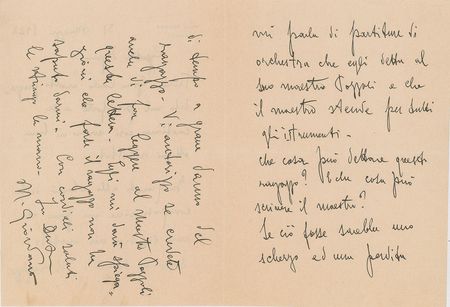 mi parla di partiture di
orchestra che egli detta al
suo maestro Pozzoli e che
il maestro stende per tutti
gli istrumenti -
che cosa può dettare questo
ragazzo? E che cosa può
scrivere il maestro?
Se ciò fosse sarebbe uno
scherzo ed una perdita
di tempo a grave danno del
ragazzo - Vi autorizzo se credete
anche di far leggere al maestro Pozzoli
questa lettera - Egli mi darà spiega-
zioni che forse il ragazzo non ha
saputo darmi - Con cordiali saluti
le stringo la mano -
Giordano